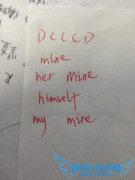 DCCCD
mine
her mine
himself
my mine